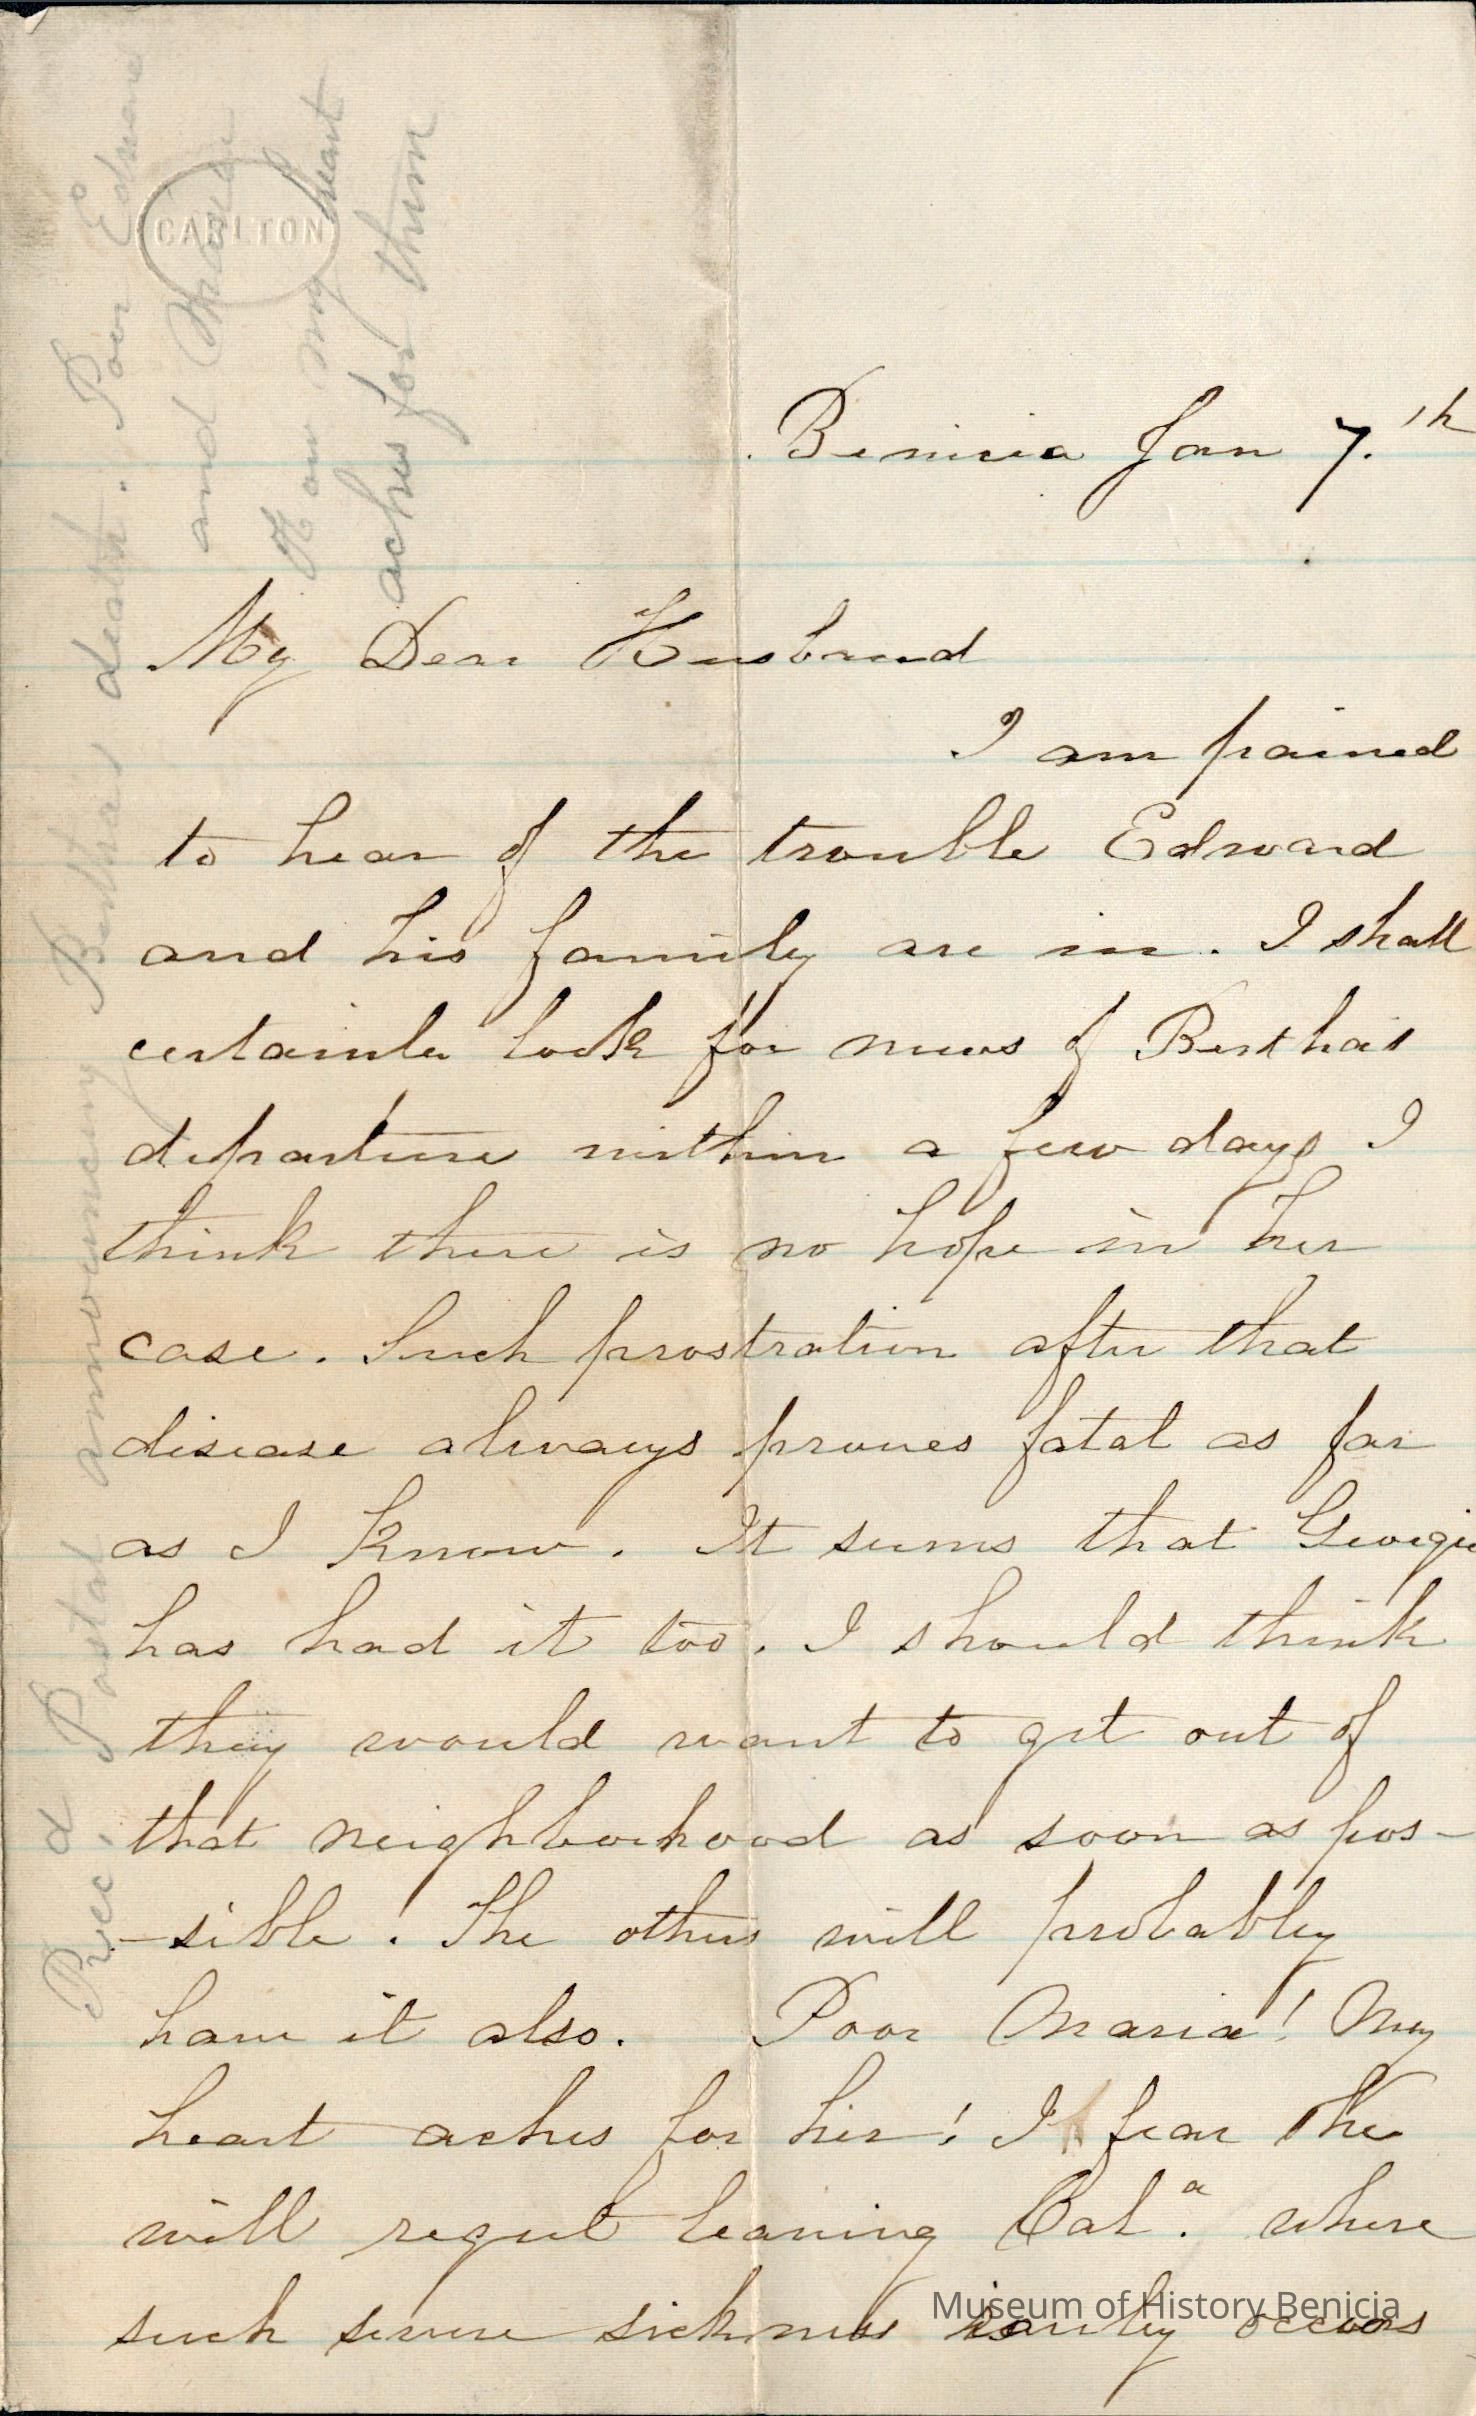 CARLTON
Benicia Jan 7.th
My Dear Husband
I am pained
to hear of the trouble Edward
and his family are in. I shall
certainly look for news of Bertha's
departure within a few days I
think there is no hope in her
case. Such prostration after that
disease always proves fatal as far
as I know. It seems that Georgie
has had it too. I should think
they would want to get out of
that neighborhood as soon as pos-
-sible! The others will probably
have it also. Poor Maria! My
heart aches for her! I fear she
will regret leaving Cal.a where
such severe sickness rarely occurs
Rec'd Postal announcing Berthas death. Poor Edward
and Maria
How my heart
aches for them
Museum of History Benicia